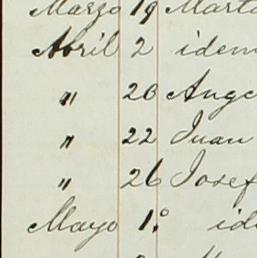 Marzo 19 Mart
Abril 2 idem
" 20 Ange
" 22 Juan
" 26 Josef
Mayo 1.º id